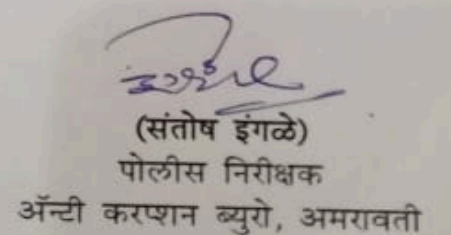 (संतोष इंगळे)
पोलीस निरीक्षक
ॲन्टी करप्शन ब्युरो, अमरावती